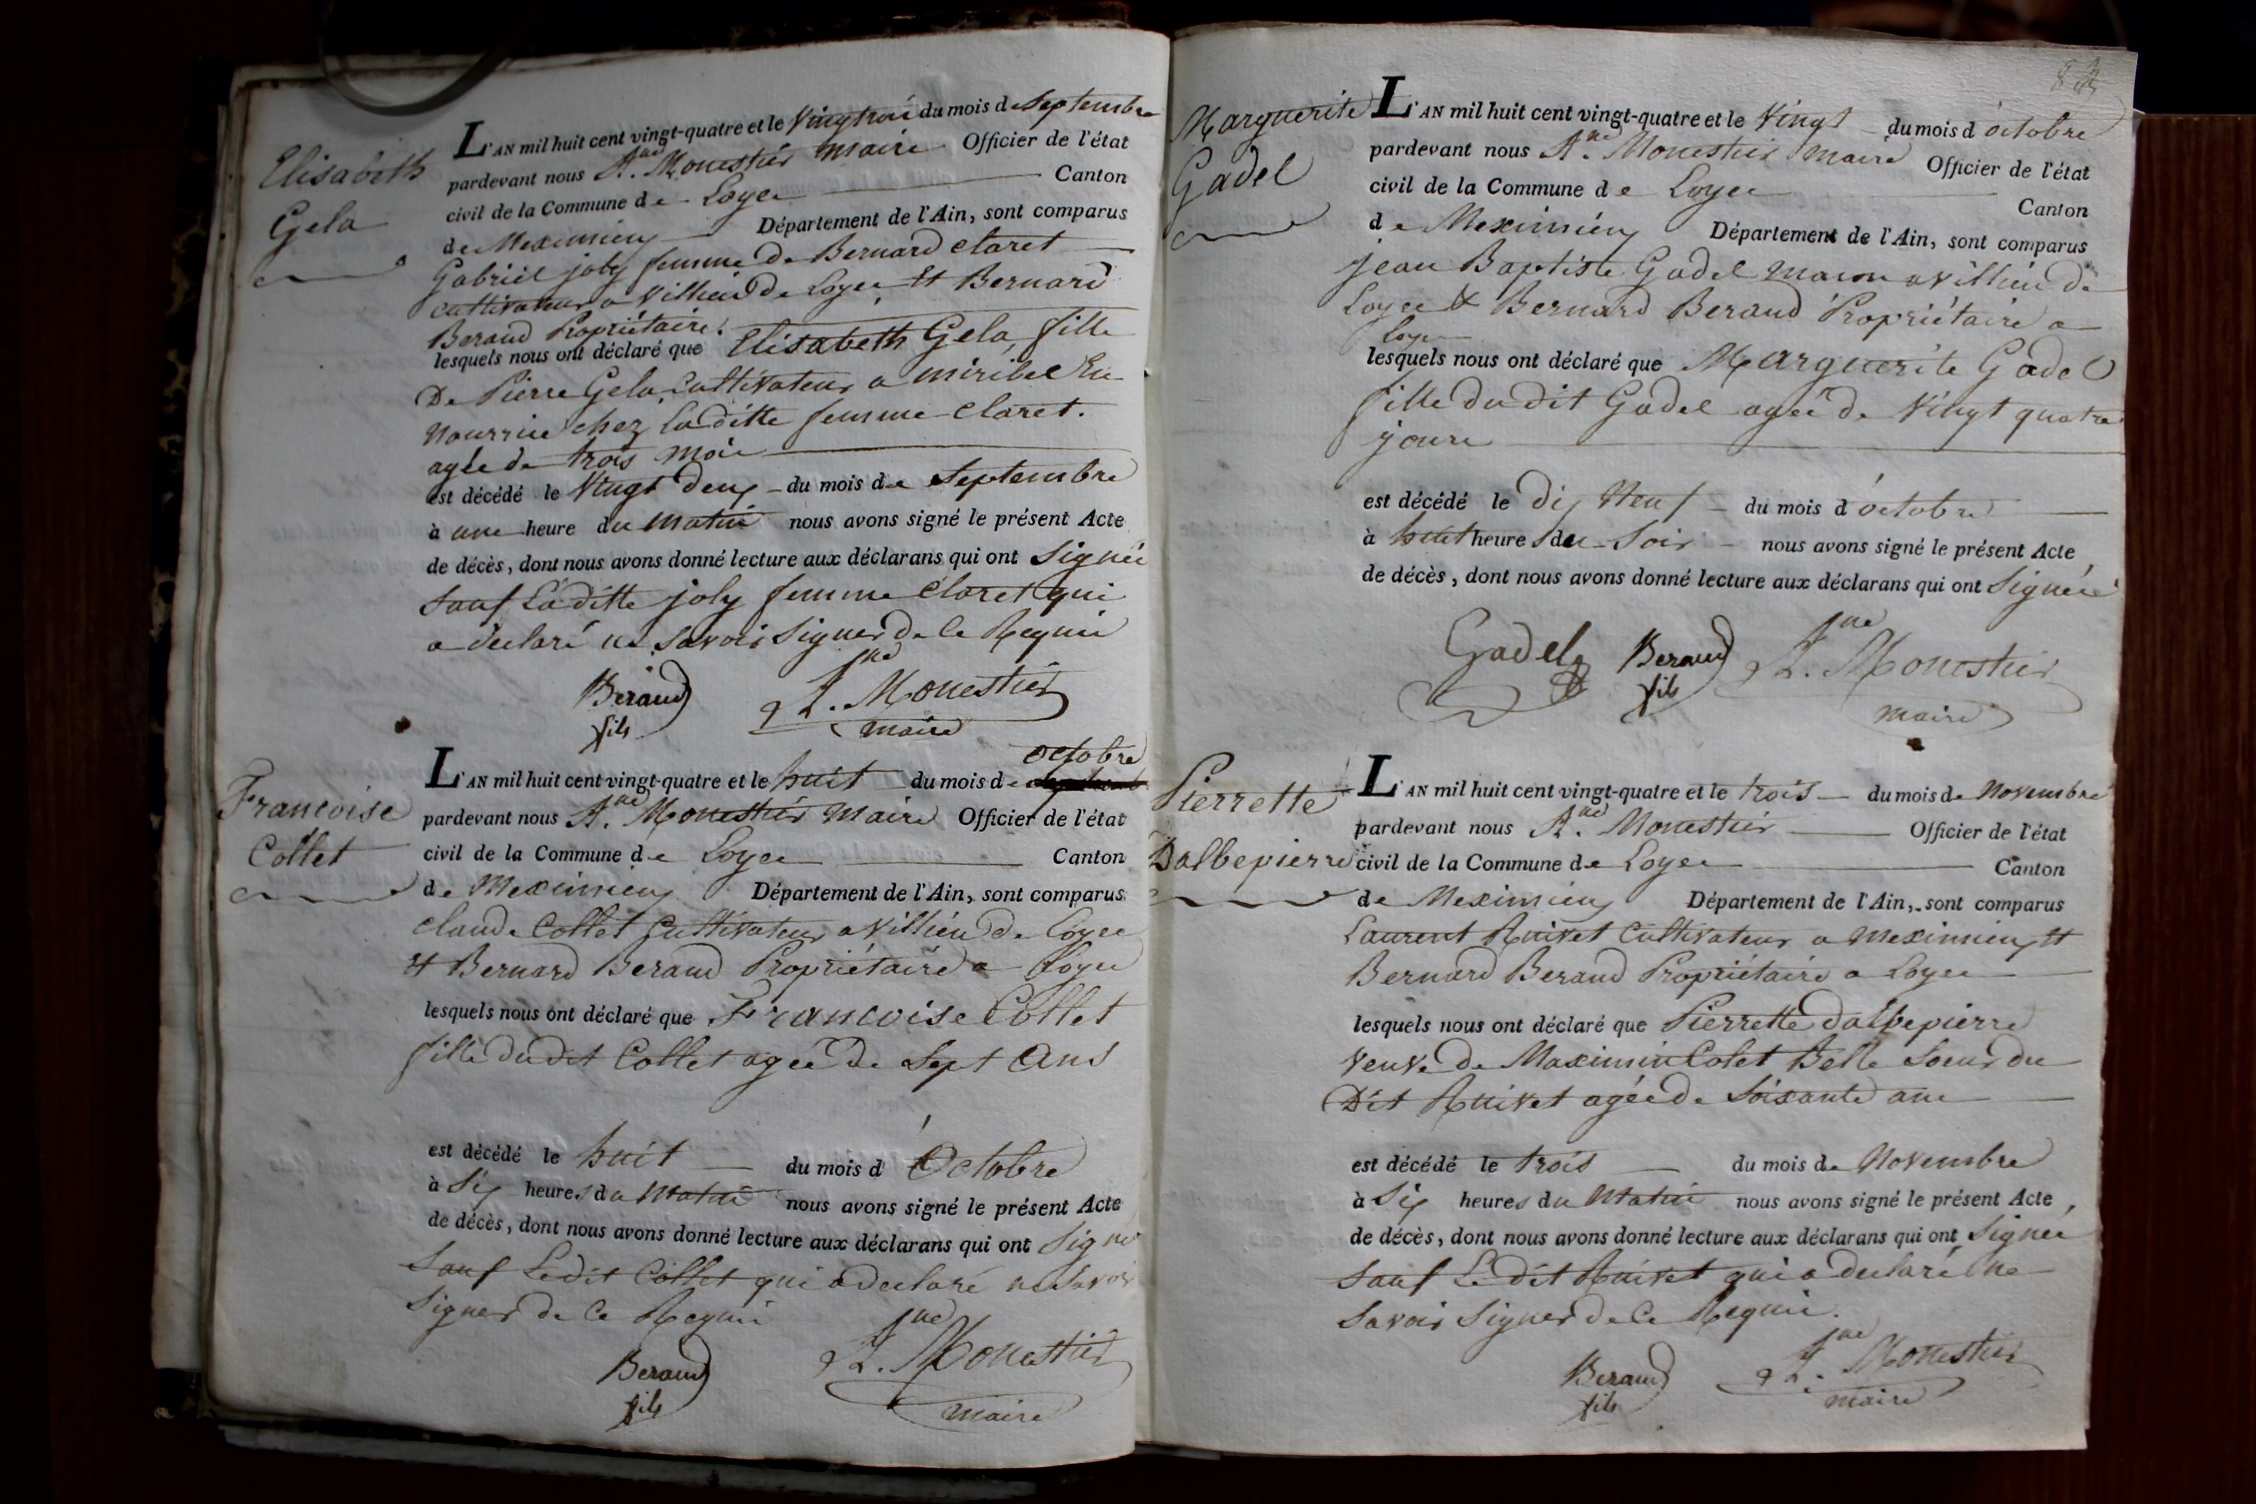 Elisabeth
Gela
L'AN mil huit cent vingt-quatre et le Vingtrois du mois de Septembre
pardevant nous A.ne Monestier maire Officier de l'état
civil de la Commune de Loyes Canton
de Meximieux Département de l'Ain, sont comparus
Gabriel joly femme de Bernard Claret
cultivateur a Villieu de Loyes, Et Bernard
Beraud Propriétaire.
lesquels nous ont déclaré que Elisabeth Gela, fille
De Pierre Gela, Cultivateur a miribel En
Nourrice chez Laditte femme Claret.
agée de trois mois
est décédé le Vingt deux du mois de Septembre
à une heure du matin nous avons signé le présent Acte
de décès, dont nous avons donné lecture aux déclarans qui ont Signés
Sauf Laditte joly femme Claret qui
a déclaré ne Savoir Signer de ce Requis
Beraud fils
A.ne Monestier
maire
Francoise
Collet
L'AN mil huit cent vingt-quatre et le huit du mois de octobre
pardevant nous A.ne Monestier maire Officier de l'état
civil de la Commune de Loyes Canton
de Meximieux Département de l'Ain, sont comparus
Claude Collet Cultivateur a Villieu de Loyes
Et Bernard Beraud Propriétaire a Loyes
lesquels nous ont déclaré que Francoise Collet
fille dudit Collet agée de Sept Ans
est décédé le huit du mois d'Octobre
à Six heures du Matin nous avons signé le présent Acte
de décès, dont nous avons donné lecture aux déclarans qui ont Signé
Sauf Ledit Collet qui a declaré ne Savoir
Signer de Ce Requis
Beraud fils
A.ne Monestier
maire
Marguerite
Gadel
L'AN mil huit cent vingt-quatre et le Vingt du mois d'octobre
pardevant nous A.ne Monestier maire Officier de l'état
civil de la Commune de Loyes Canton
de Meximieux Département de l'Ain, sont comparus
jean Baptiste Gadel Macon a Villieu de
Loyes & Bernard Beraud Propriétaire a
Loyes
lesquels nous ont déclaré que Marguerite Gadel
fille dudit Gadel agée de Vingt quatre
jours
est décédé le dix Neuf du mois d'octobre
à huit heures du Soir nous avons signé le présent Acte
de décès, dont nous avons donné lecture aux déclarans qui ont Signés
Gadel Beraud fils
A.ne Monestier
maire
Pierrette
Dalbepierre
L'AN mil huit cent vingt-quatre et le trois du mois de Novembre
pardevant nous A.ne Monestier Officier de l'état
civil de la Commune de Loyes Canton
de Meximieux Département de l'Ain, sont comparus
Laurent Ruivet Cultivateur a Meximieux Et
Bernard Beraud Propriétaire a Loyes
lesquels nous ont déclaré que Pierrette Dalbepierre
Veuve de Maximin Colet Belle Soeur du
Dit Ruivet agée de Soixante ans
est décédé le trois du mois de Novembre
à Six heures du Matin nous avons signé le présent Acte
de décès, dont nous avons donné lecture aux déclarans qui ont Signés
Sauf Le dit Ruivet qui a declaré ne
Savoir Signer de Ce Requis.
Beraud fils
A.ne Monestier
maire